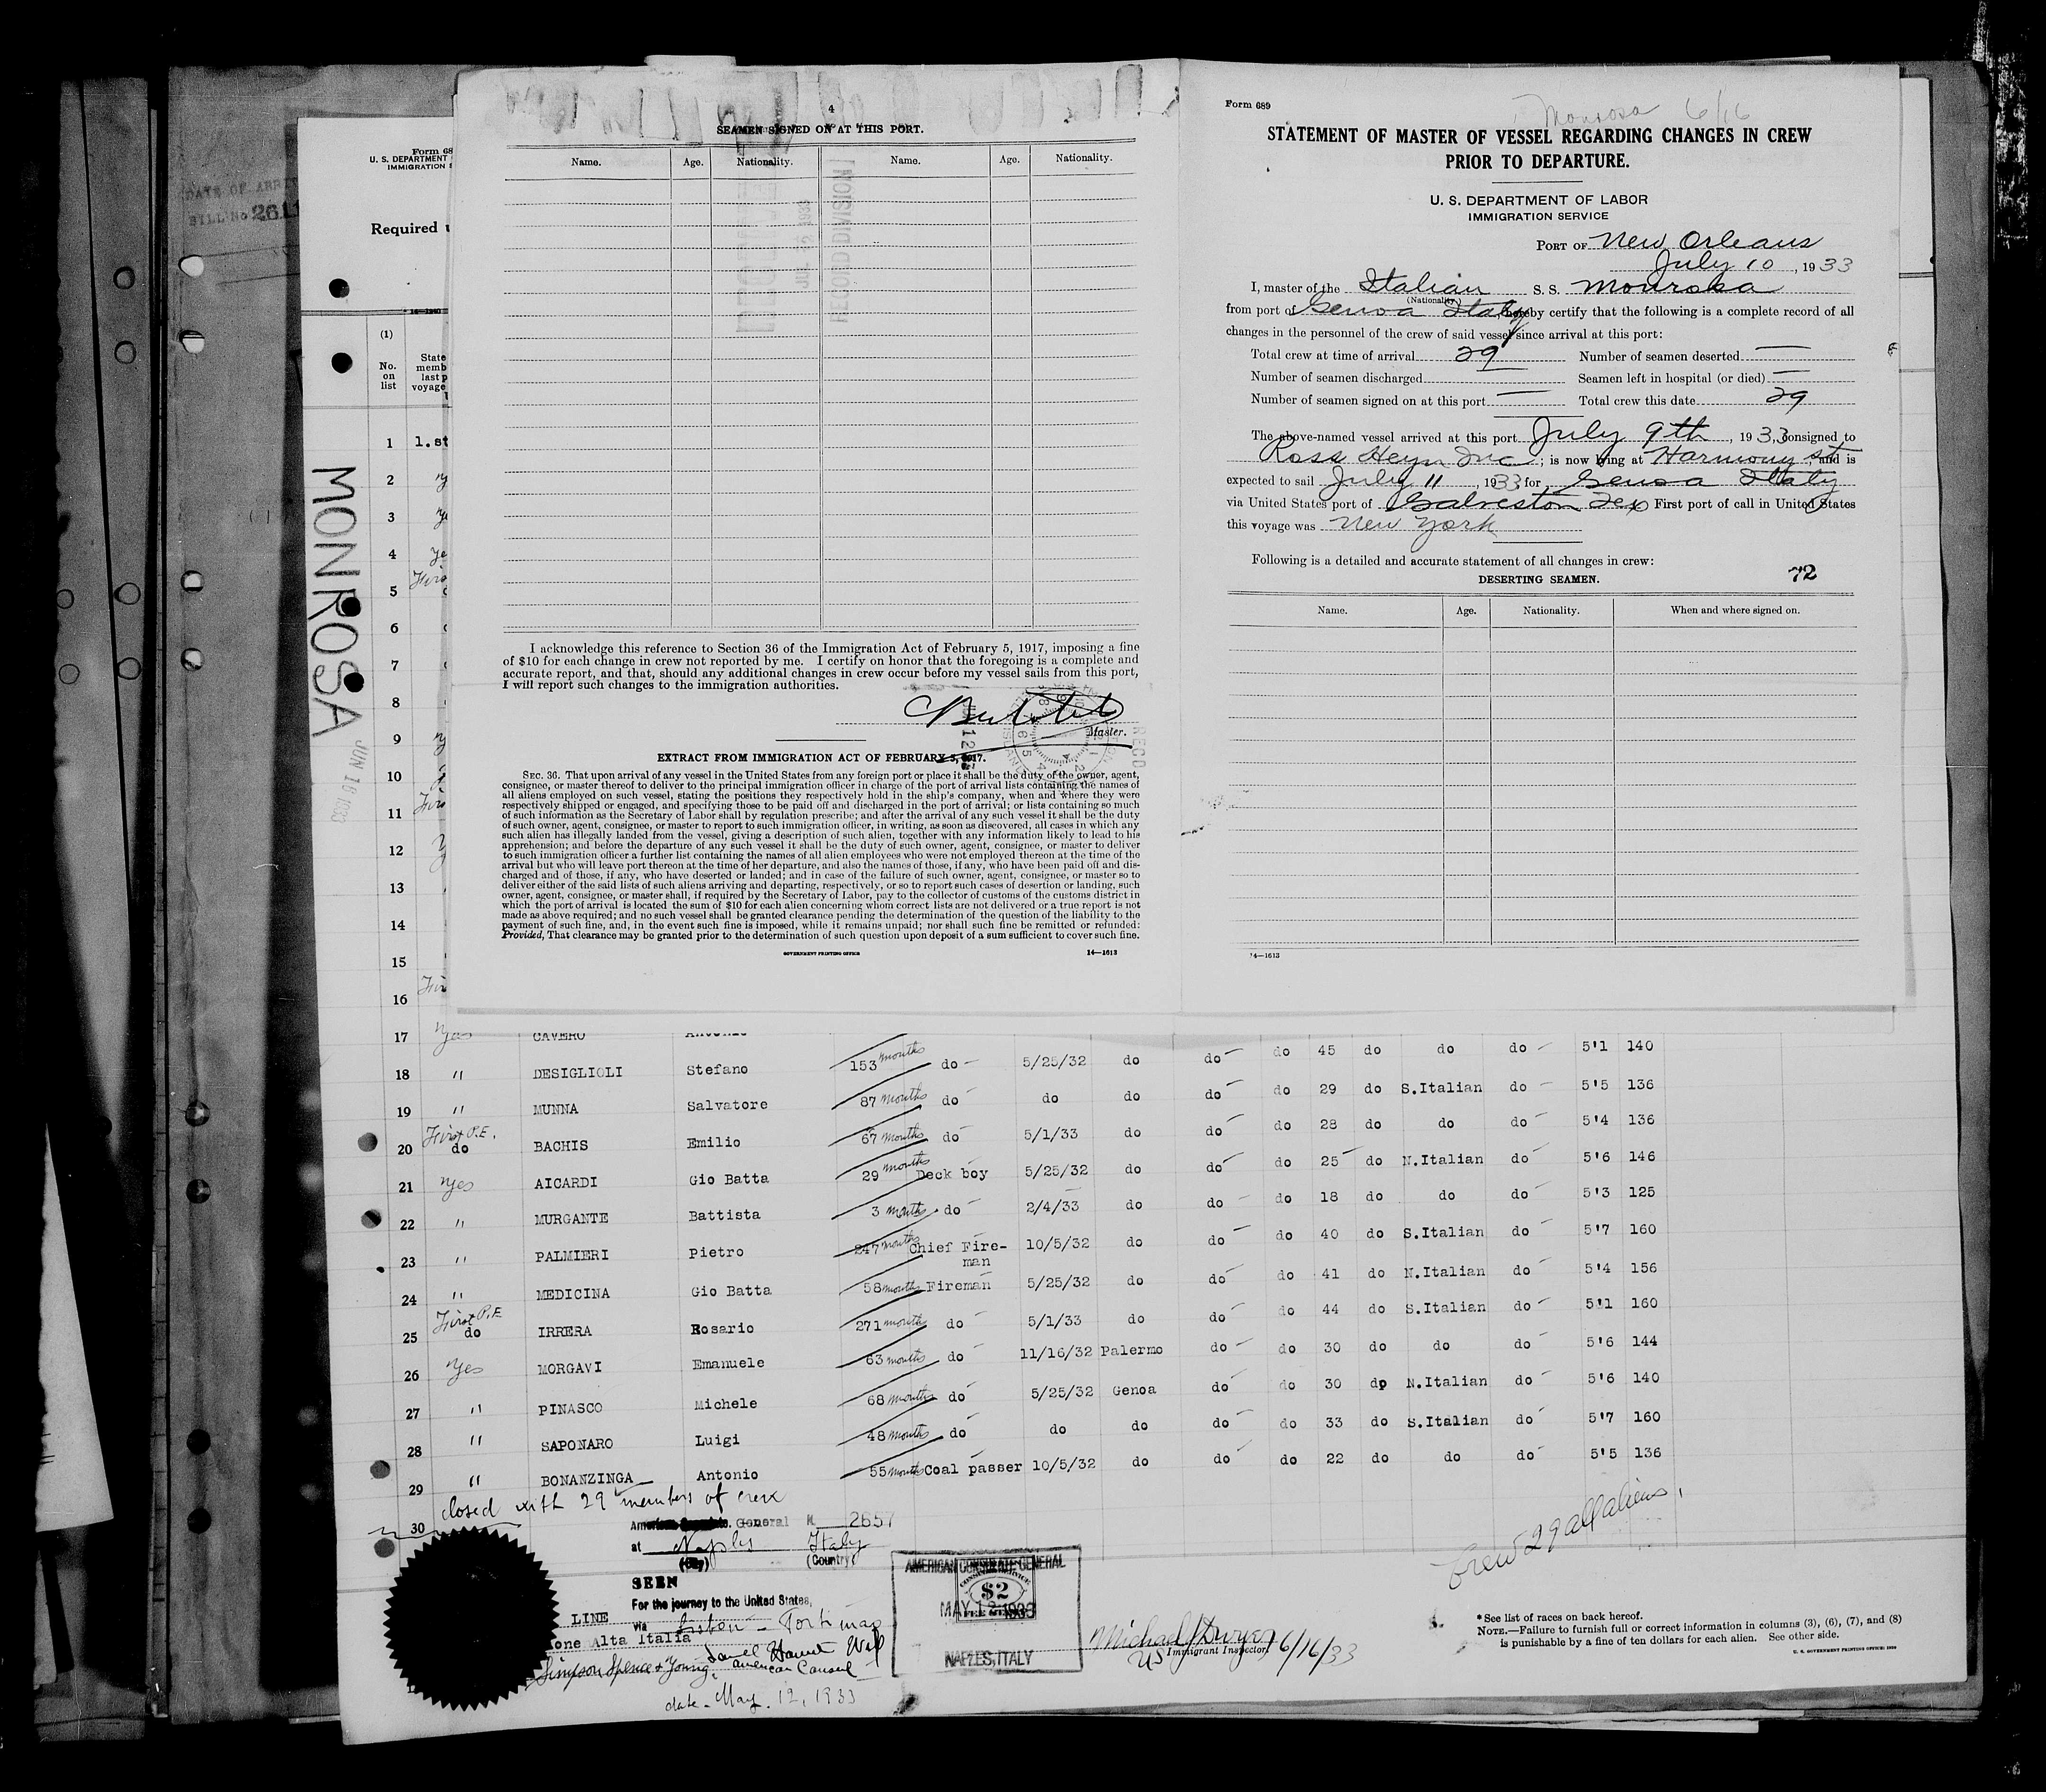 DATE OF ARRI
BILL No 26.1
Form 68
U. S. DEPARTMENT
IMMIGRATION S
Required u
14—1240
(1)
No.
on
list
State
memb
last p
voyage
1 1.st
2
3
4 Ye
5 Firs
6
7
8
9
10
11 Firs
12
13
14
15
16 Fir
MONROSA
JUN 16 1933
4
SEAMEN SIGNED ON AT THIS PORT.
Name. Age. Nationality. Name. Age. Nationality.
RECORD DIVISION
I acknowledge this reference to Section 36 of the Immigration Act of February 5, 1917, imposing a fine
of $10 for each change in crew not reported by me. I certify on honor that the foregoing is a complete and
accurate report, and that, should any additional changes in crew occur before my vessel sails from this port,
I will report such changes to the immigration authorities.
Master.
RECD
EXTRACT FROM IMMIGRATION ACT OF FEBRUARY 5, 1917.
SEC. 36. That upon arrival of any vessel in the United States from any foreign port or place it shall be the duty of the owner, agent,
consignee, or master thereof to deliver to the principal immigration officer in charge of the port of arrival lists containing the names of
all aliens employed on such vessel, stating the positions they respectively hold in the ship's company, when and where they were
respectively shipped or engaged, and specifying those to be paid off and discharged in the port of arrival; or lists containing so much
of such information as the Secretary of Labor shall by regulation prescribe; and after the arrival of any such vessel it shall be the duty
of such owner, agent, consignee, or master to report to such immigration officer, in writing, as soon as discovered, all cases in which any
such alien has illegally landed from the vessel, giving a description of such alien, together with any information likely to lead to his
apprehension; and before the departure of any such vessel it shall be the duty of such owner, agent, consignee, or master to deliver
to such immigration officer a further list containing the names of all alien employees who were not employed thereon at the time of the
arrival but who will leave port thereon at the time of her departure, and also the names of those, if any, who have been paid off and dis-
charged and of those, if any, who have deserted or landed; and in case of the failure of such owner, agent, consignee, or master so to
deliver either of the said lists of such aliens arriving and departing, respectively, or so to report such cases of desertion or landing, such
owner, agent, consignee, or master shall, if required by the Secretary of Labor, pay to the collector of customs of the customs district in
which the port of arrival is located the sum of $10 for each alien concerning whom correct lists are not delivered or a true report is not
made as above required; and no such vessel shall be granted clearance pending the determination of the question of the liability to the
payment of such fine, and, in the event such fine is imposed, while it remains unpaid; nor shall such fine be remitted or refunded:
Provided, That clearance may be granted prior to the determination of such question upon deposit of a sum sufficient to cover such fine.
GOVERNMENT PRINTING OFFICE 14—1613
Form 689
Monrosa 6/16
STATEMENT OF MASTER OF VESSEL REGARDING CHANGES IN CREW
PRIOR TO DEPARTURE.
U. S. DEPARTMENT OF LABOR
IMMIGRATION SERVICE
PORT OF New Orleans
July 10, 1933
I, master of the Italian S. S. Monrosa
(Nationality)
from port of Genoa Italy, hereby certify that the following is a complete record of all
changes in the personnel of the crew of said vessel since arrival at this port:
Total crew at time of arrival 29 Number of seamen deserted —
Number of seamen discharged Seamen left in hospital (or died) —
Number of seamen signed on at this port — Total crew this date 29
The above-named vessel arrived at this port July 9th, 1933, consigned to
Ross Heyn Inc; is now lying at Harmony st, and is
expected to sail July 11, 1933, for Genoa Italy
via United States port of Galveston Tex First port of call in United States
this voyage was New York
Following is a detailed and accurate statement of all changes in crew:
DESERTING SEAMEN. 72
Name. Age. Nationality. When and where signed on.
14—1613
17 Yes CAVERO Antonio 153 months do 5/25/32 do do do 45 do do do 5'1 140
18 " DESIGLIOLI Stefano 87 months do do do do do 29 do S.Italian do 5'5 136
19 " MUNNA Salvatore 67 months do 5/1/33 do do do 28 do do do 5'4 136
20 First P.E. do BACHIS Emilio 29 months Deck boy 5/25/32 do do do 25 do N.Italian do 5'6 146
21 Yes AICARDI Gio Batta 3 months do 2/4/33 do do do 18 do do do 5'3 125
22 " MURGANTE Battista 247 months Chief Fire-man 10/5/32 do do do 40 do S.Italian do 5'7 160
23 " PALMIERI Pietro 58 months Fireman 5/25/32 do do do 41 do N.Italian do 5'4 156
24 " MEDICINA Gio Batta 271 months do 5/1/33 do do do 44 do S.Italian do 5'1 160
25 First P.E do IRRERA Rosario 63 months do 11/16/32 Palermo do do 30 do do do 5'6 144
26 Yes MORGAVI Emanuele 68 months do 5/25/32 Genoa do do 30 do N.Italian do 5'6 140
27 " PINASCO Michele 48 months do do do do do 33 do S.Italian do 5'7 160
28 " SAPONARO Luigi 55 months Coal passer 10/5/32 do do do 22 do do do 5'5 136
29 " BONANZINGA Antonio
closed with 29 members of crew
30
American General N. 2657
at Naples Italy
(City) (Country)
SEEN
For the journey to the United States,
via Lisbon -
LINE
ione Alta Italia
Simpson Spence & Young
American Consul
date - May. 12, 1933
AMERICAN CONSULATE GENERAL
$2
MAY 12 1933
NAPLES, ITALY
Michael J Dwyer 6/16/33
US Immigrant Inspector.
Crew 29 all aliens
* See list of races on back hereof.
NOTE.—Failure to furnish full or correct information in columns (3), (6), (7), and (8)
is punishable by a fine of ten dollars for each alien. See other side.
U. S. GOVERNMENT PRINTING OFFICE: 1930